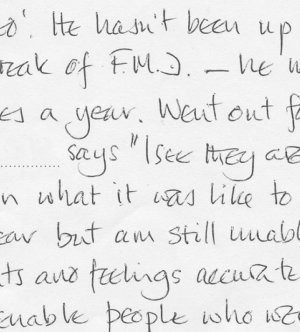 '. He hasn't been up
reak of F.M.D. – he
es a year. Went out
.............. says "I see they are
n what it was like to
ear but am still unabl
ts and feelings accurate
enable people who wer